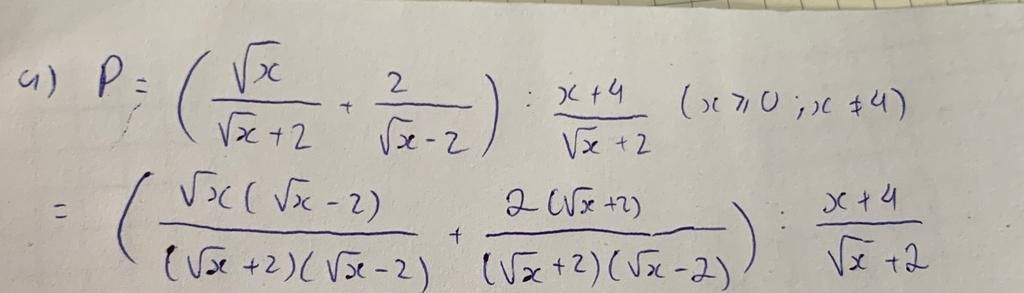 a) P = (√x / (√x + 2) + 2 / (√x - 2)) : (x + 4) / (√x + 2) (x ⩾ 0 ; x ≠ 4)
= (√x(√x - 2) / ((√x + 2)(√x - 2)) + 2(√x + 2) / ((√x + 2)(√x - 2))) : (x + 4) / (√x + 2)